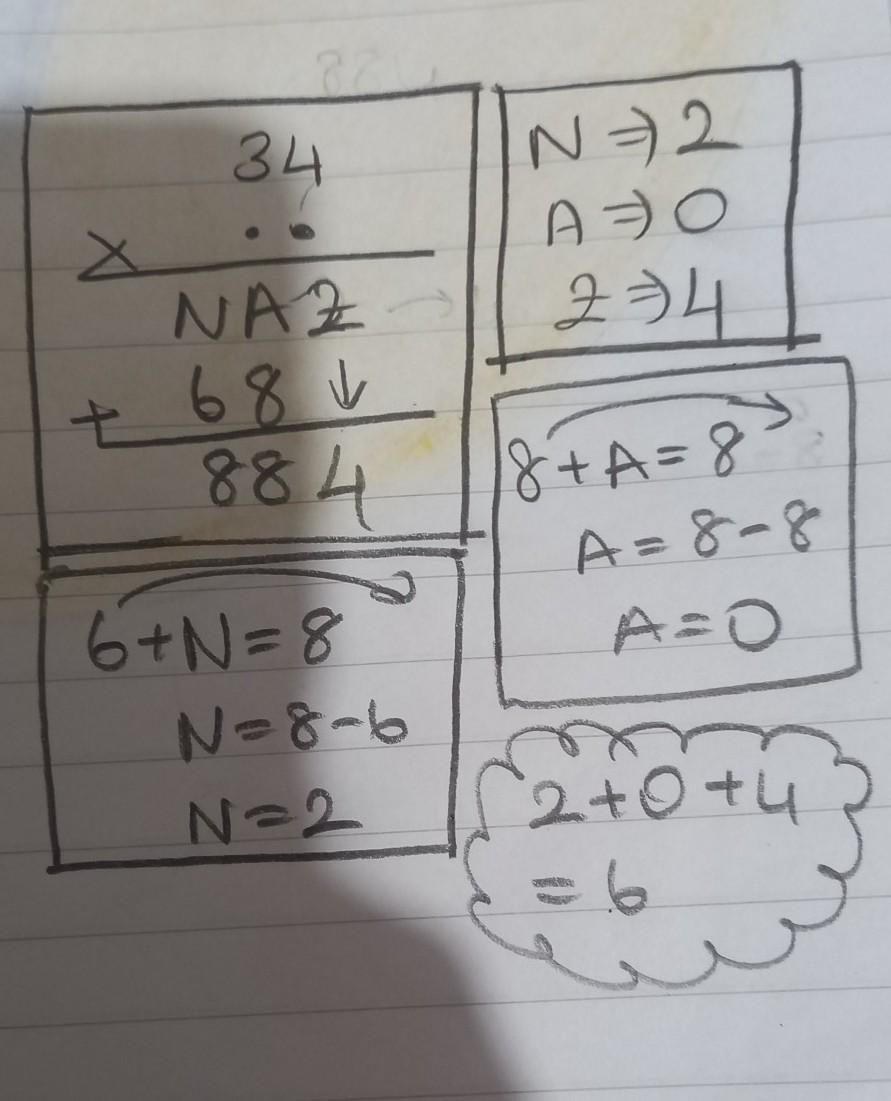 34
× • •
NAZ
+ 68 ↓
884
N ⇒ 2
A ⇒ 0
Z ⇒ 4
8 + A = 8
A = 8 - 8
A = 0
6 + N = 8
N = 8 - 6
N = 2
2 + 0 + 4
= 6